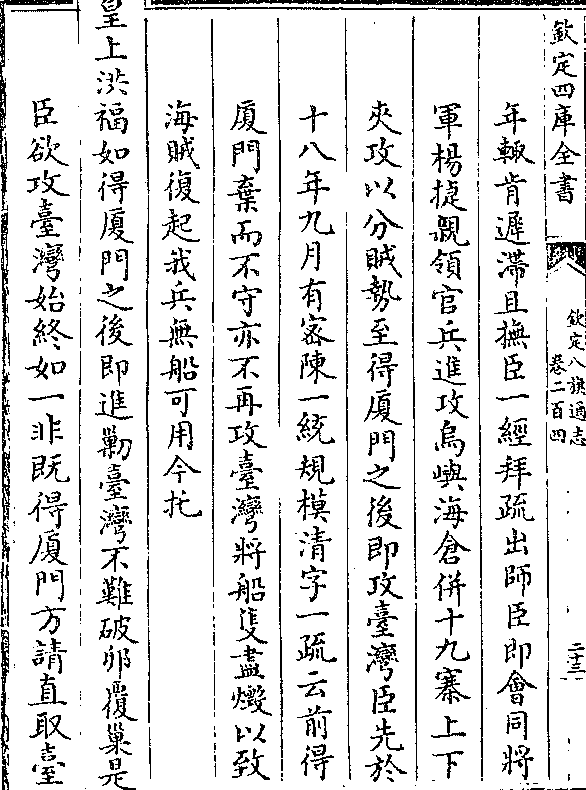 欽定四庫全書
欽定八旗通志
卷二百四
二十三
年輙肯遲滯且撫臣一經拜疏出師臣即會同將
軍楊捷親領官兵進攻烏嶼海倉併十九寨上下
夾攻以分賊勢至得厦門之後即攻臺灣臣先於
十八年九月有密陳一統規模清字一疏云前得
厦門棄而不守亦不再攻臺灣將船隻盡燬以致
海賊復起我兵無船可用今托
皇上洪福如得厦門之後即進勦臺灣不難破卵覆巢是
臣欲攻臺灣始終如一非既得厦門方請直取臺